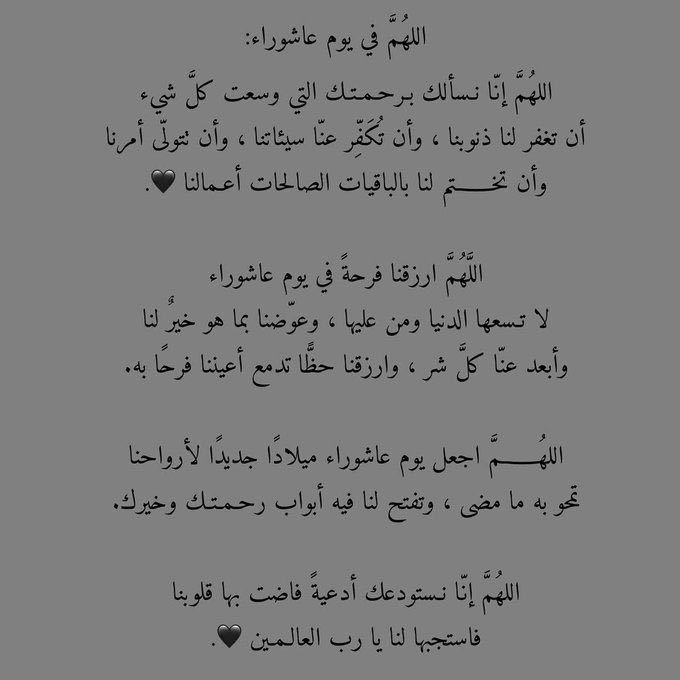 اللهُمَّ في يوم عاشوراء:
اللهُمَّ إنّا نـسألك بـرحـمـتـك التي وسعت كلَّ شيء
أن تغفر لنا ذنوبنا ، وأن تُكَفِّر عنّا سيئاتنا ، وأن تتولّى أمرنا
وأن تخـــــتم لنا بالباقيات الصالحات أعـمالنا 🖤.
اللَّهُمَّ ارزقنا فرحةً في يوم عاشوراء
لا تـسعها الدنيا ومن عليها ، وعوّضنا بما هو خيرٌ لنا
وأبعد عنّا كلَّ شر ، وارزقنا حظًّا تدمع أعيننا فرحًا به.
اللهُـــــمَّ اجعل يوم عاشوراء ميلادًا جديدًا لأرواحنا
تمحو به ما مضى ، وتفتح لنا فيه أبواب رحـمـتـك وخيرك.
اللهُمَّ إنّا نـستودعك أدعيةً فاضت بها قلوبنا
فاستجبها لنا يا رب العالـمـين 🖤.